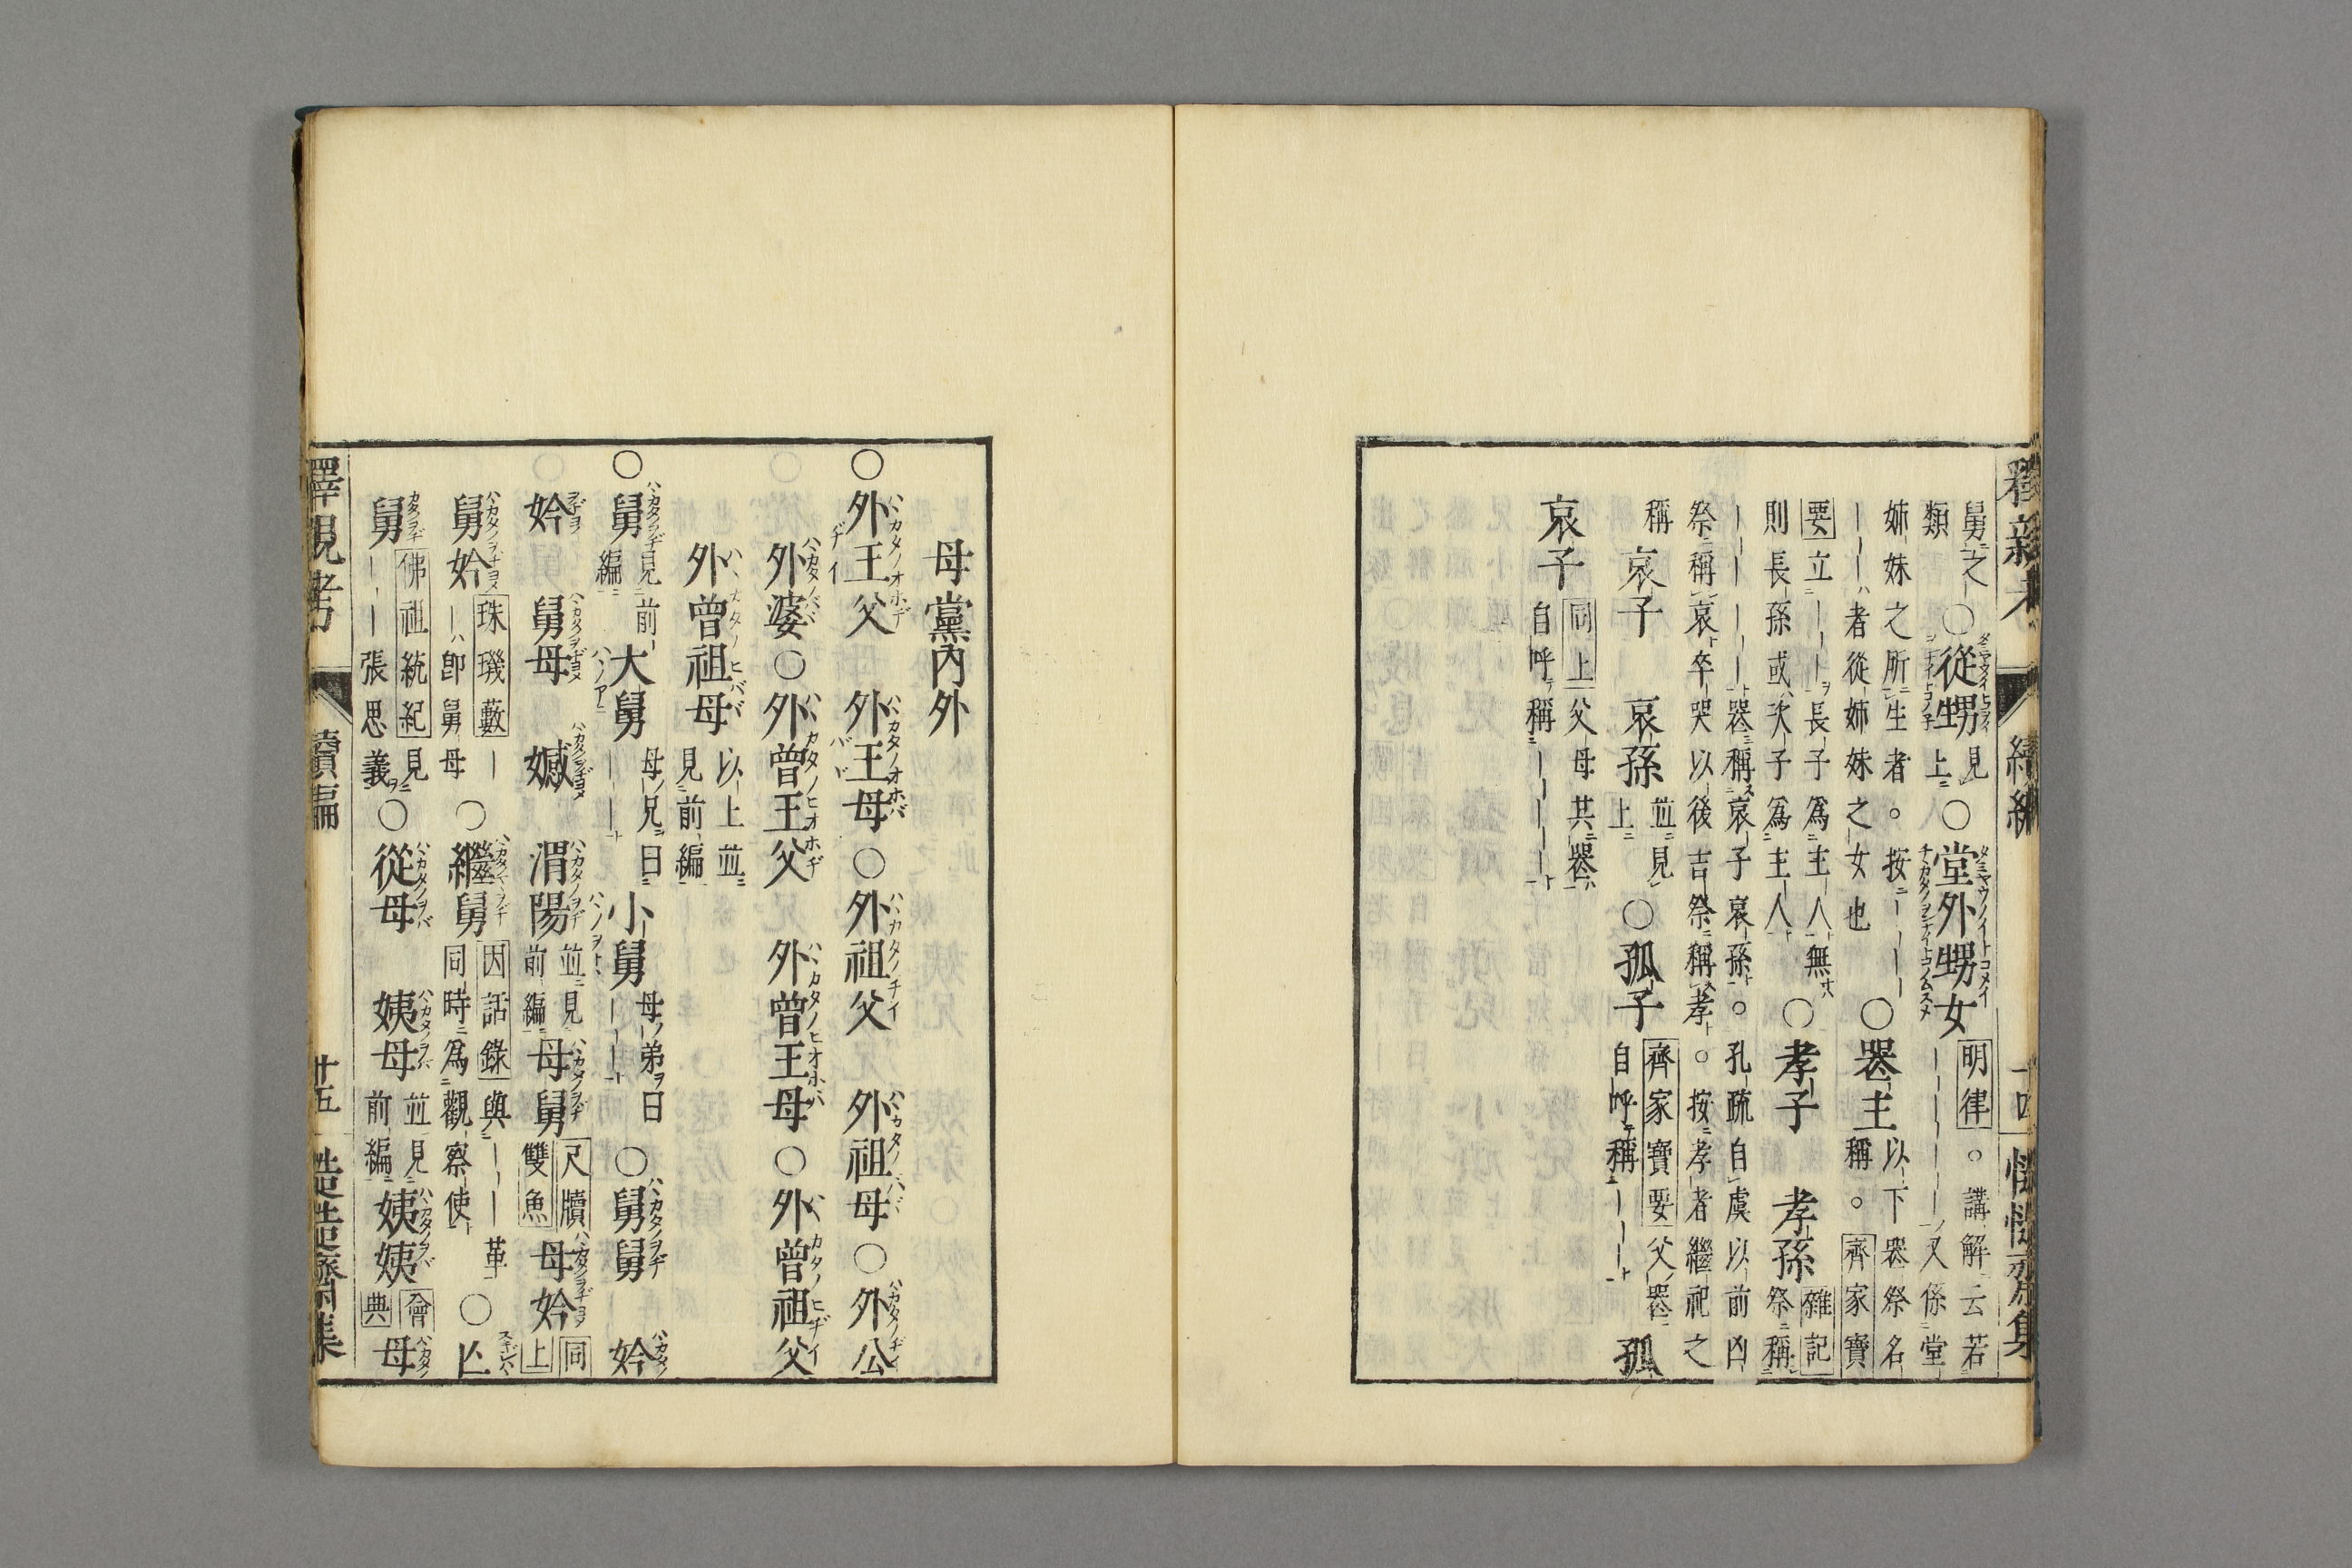 舅之類　○從甥見上　○堂外甥女　明律。講解云若
｜｜｜｜又係堂
姉妹之所生者。按｜｜｜
｜｜者從姉妹之女也　○喪主　以下喪祭名稱。齊家寶
要立｜｜｜長子為主人無
則長孫或次子為主人　○孝子　孝孫　雜記祭稱
｜｜｜｜喪稱哀子哀孫。孔疏自虞以前凶
祭稱哀卒哭以後吉祭稱孝。按孝者繼祀之
稱　哀子　哀孫　並見上　○孤子　齊家寶要父喪自呼稱｜｜｜　孤
哀子　同上父母其喪自呼稱｜｜｜
續編
母黨內外
○外王父　外王母　○外祖父　外祖母　○外公
外婆　○外曾王父　外曾王母　○外曾祖父
外曾祖母　以上並見前編
○舅　見前編　大舅　母ノ兄ヲ曰｜｜　小舅　母ノ弟ヲ曰｜｜｜　○舅舅　妗
妗　舅母　㜝　渭陽　並見前編　母舅　尺牘雙魚　母妗　同上
舅妗　珠璣藪｜｜即舅母　○繼舅　因話錄與｜｜革同時為觀察使　○亾
舅　佛祖統紀見｜｜張思義　○從母　姨母　並見前編　姨姨　會典　母
釋親考　續編　十五　造造齋集